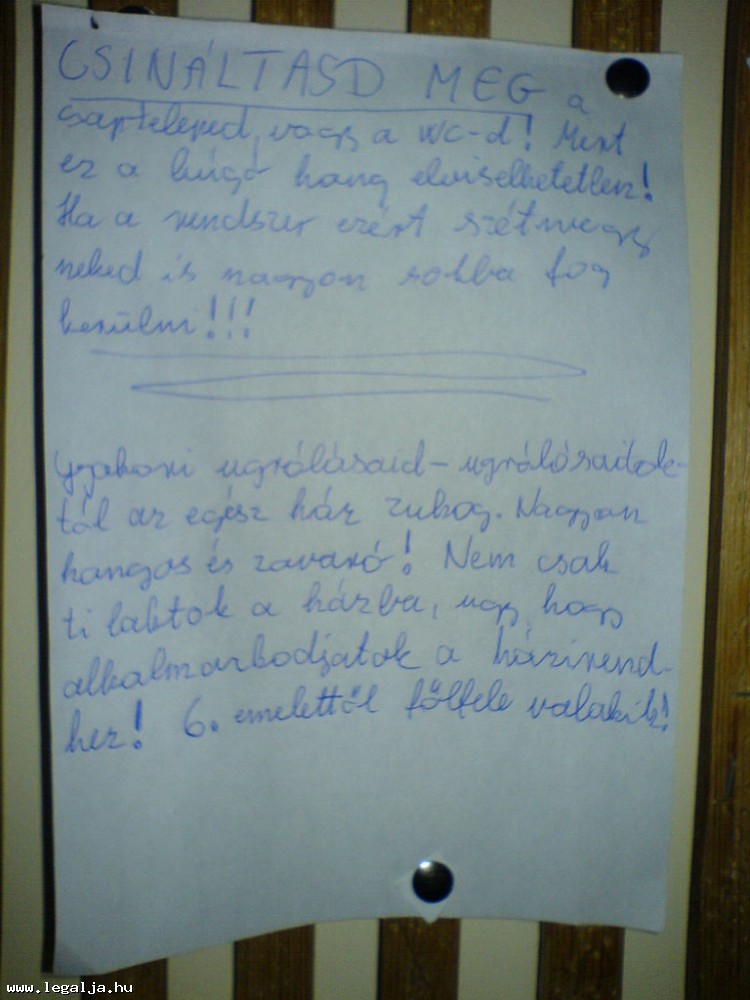 CSINÁLTASD MEG a
csapteleped, vagy a WC-d! Mert
ez a búgó hang elviselhetetlen!
Ha a rendszer ezért szétmegy
neked is nagyon sokba fog
kerülni!!!
Gyakori ugrálásaid-ugrálásaitok-
tól az egész ház zubog. Nagyon
hangos és zavaró! Nem csak
ti laktok a házba, ugy, hogy
alkalmazkodjatok a házirend-
hez! 6. emelettől fölfele valakik!
www.legalja.hu